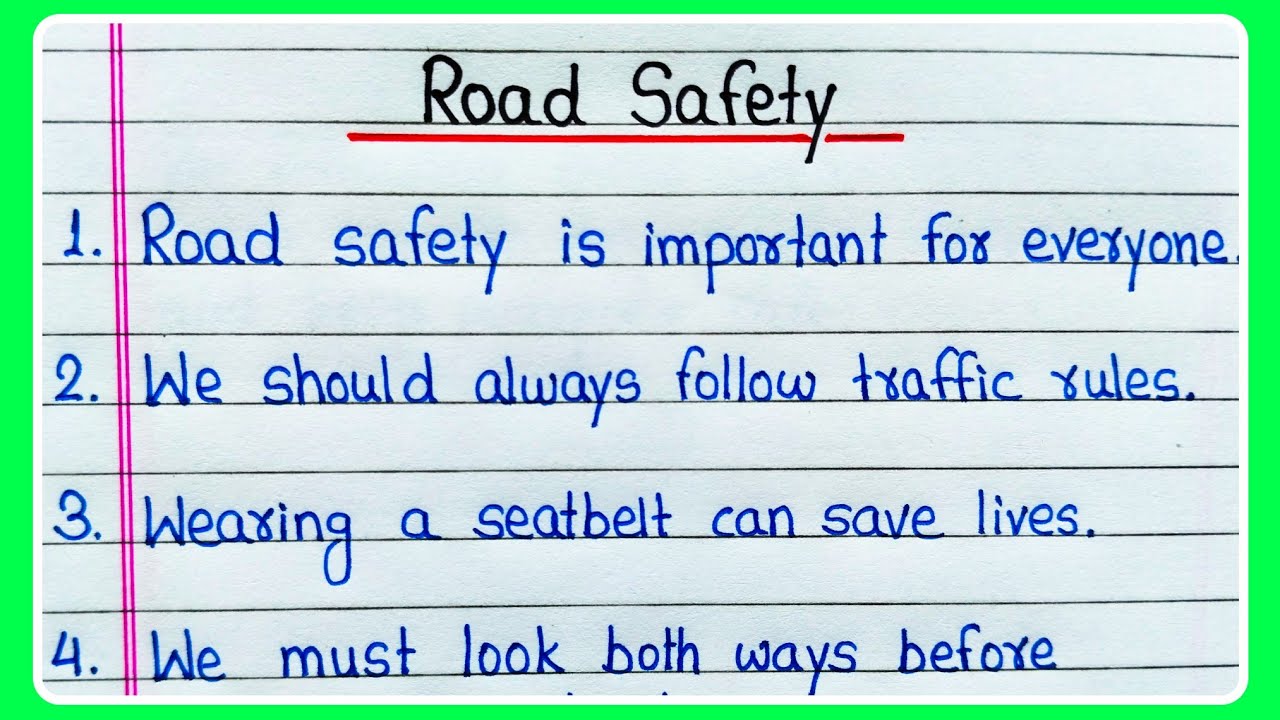 Road Safety
1. Road safety is important for everyone.
2. We should always follow traffic rules.
3. Wearing a seatbelt can save lives.
4. We must look both ways before